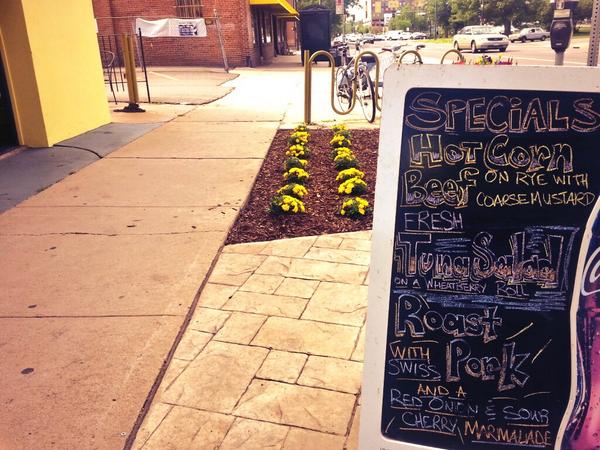 SPECIALS
Hot Corn
Beef ON RYE WITH
COARSE MUSTARD
FRESH
Tuna Salad
ON A WHEATBERRY ROLL
Roast
WITH Pork
SWISS
AND A
RED ONION & SOUR
CHERRY MARMALADE